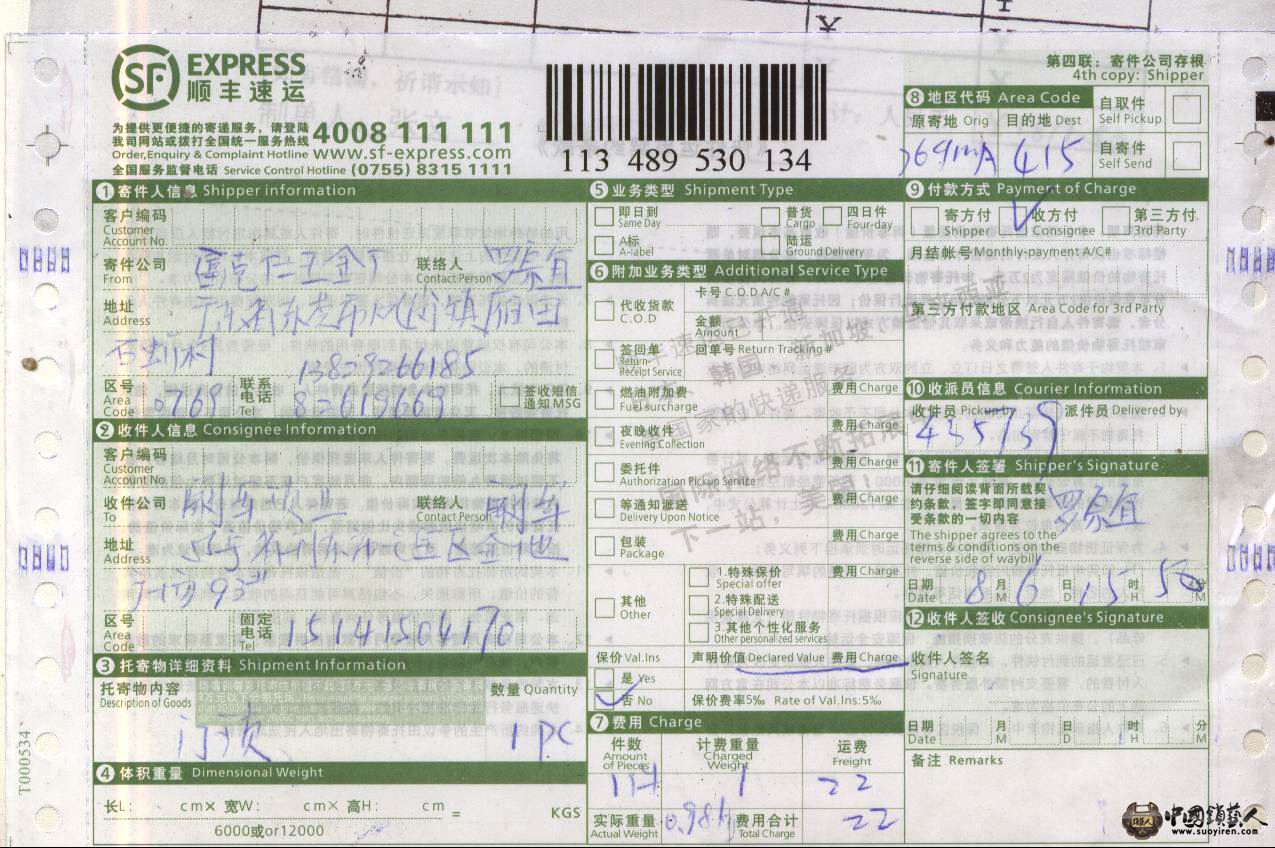 SF EXPRESS
顺丰速运
为提供更便捷的寄递服务，请登陆
我司网站或拨打全国统一服务热线
4008 111 111
Order,Enquiry & Complaint Hotline www.sf-express.com
全国服务监督电话 Service Control Hotline (0755) 8315 1111
113 489 530 134
第四联：寄件公司存根
4th copy: Shipper
⑧地区代码 Area Code
原寄地 Orig 目的地 Dest
415
自取件
Self Pickup
自寄件
Self Send
①寄件人信息 Shipper information
客户编码
Customer
Account No.
寄件公司
From
联络人
Contact Person
地址
Address
广东省东莞市凤岗镇雁田
13829266185
区号
Area
Code
0769
联系
电话
Tel
82619669
签收短信
通知MSG
②收件人信息 Consignee Information
客户编码
Customer
Account No.
收件公司
To
联络人
Contact Person
地址
Address
区号
Area
Code
固定
电话
Tel
15141504170
③托寄物详细资料 Shipment Information
托寄物内容
Description of Goods
数量 Quantity
1PC
④体积重量 Dimensional Weight
长L: cm× 宽W: cm× 高H: cm = KGS
6000或or12000
⑤业务类型 Shipment Type
即日到
Same Day
普货
Cargo
四日件
Four-day
A标
A-label
陆运
Ground Delivery
⑥附加业务类型 Additional Service Type
代收货款
C.O.D
卡号 C.O.D A/C #
金额
Amount
签回单
Return-
Receipt Service
回单号 Return Tracking#
燃油附加费
Fuel surcharge
费用 Charge
夜晚收件
Evening Collection
费用 Charge
委托件
Authorization Pickup Service
费用 Charge
等通知派送
Delivery Upon Notice
费用 Charge
包装
Package
费用 Charge
其他
Other
1.特殊保价
Special offer
费用 Charge
2.特殊配送
Special Delivery
3.其他个性化服务
Other personalized services
保价 Val.Ins
声明价值 Declared Value
费用 Charge
是 Yes
否 No
保价费率5‰ Rate of Val.Ins:5‰
⑦费用 Charge
件数
Amount
of Pieces
计费重量
Charged
Weight
运费
Freight
1
22
实际重量
Actual Weight
费用合计
Total Charge
22
⑨付款方式 Payment of Charge
寄方付
Shipper
收方付
Consignee
第三方付
3rd Party
月结帐号Monthly-payment A/C#
第三方付款地区 Area Code for 3rd Party
⑩收派员信息 Courier Information
收件员 Pickup by
派件员 Delivered by
435739
⑪寄件人签署 Shipper's Signature
请仔细阅读背面所载契
约条款，签字即同意接
受条款的一切内容
The shipper agrees to the
terms & conditions on the
reverse side of waybill
日期
Date
8 月 M 6 日 D 15 时 H 50 分 M
⑫收件人签收 Consignee's Signature
收件人签名
Signature
日期
Date
月 M 日 D 时 H 分 M
备注 Remarks
T000534
中国锁艺人
www.suoyiren.com